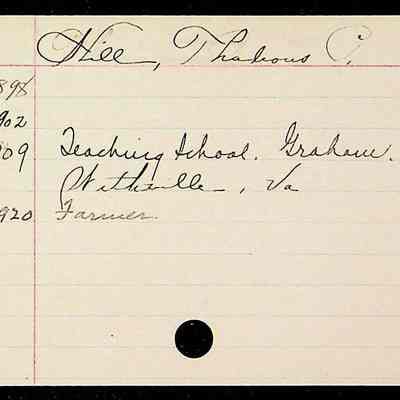 Hill, Thaddous C.
898
902
909 Teaching School. Graham.
Wytheville, Va
920 Farmer.